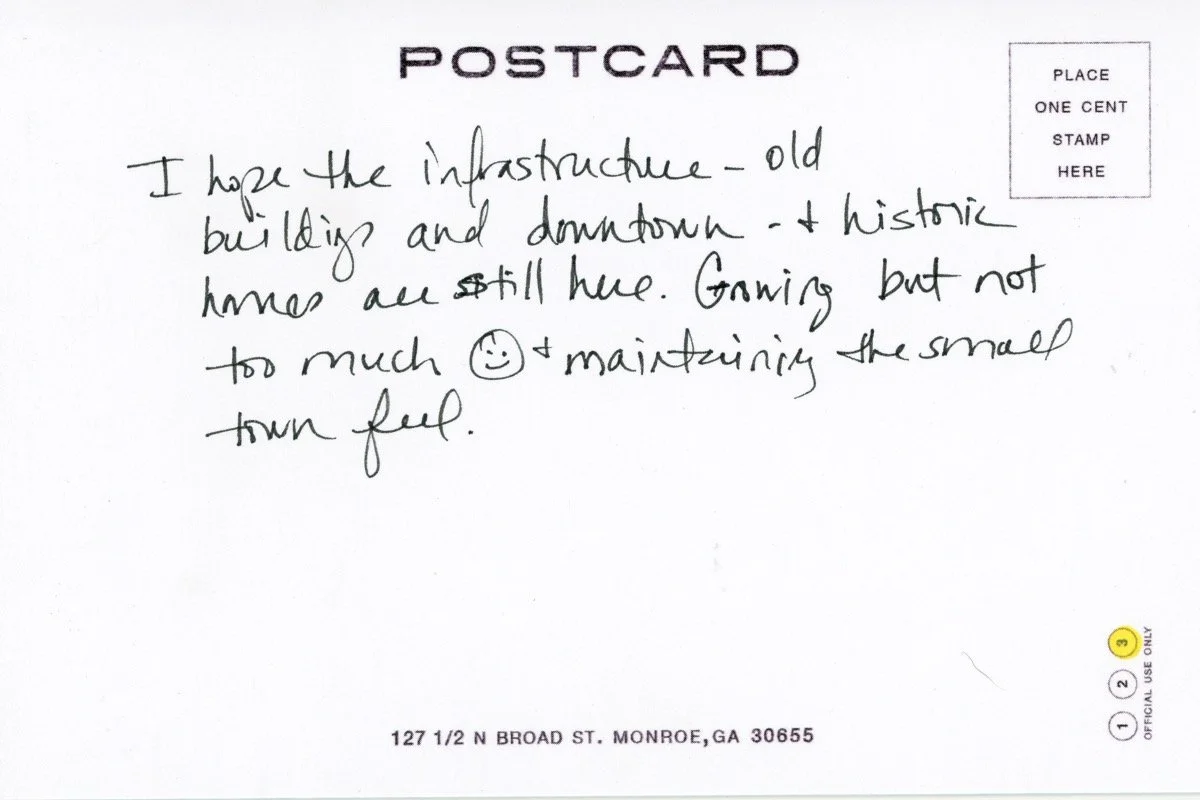 POSTCARD
PLACE
ONE CENT
STAMP
HERE
I hope the infrastructure - old
buildings and downtown - + historic
homes are still here. Growing but not
too much ☺ + maintaining the small
town feel.
1 2 3
OFFICIAL USE ONLY
127 1/2 N BROAD ST. MONROE, GA 30655